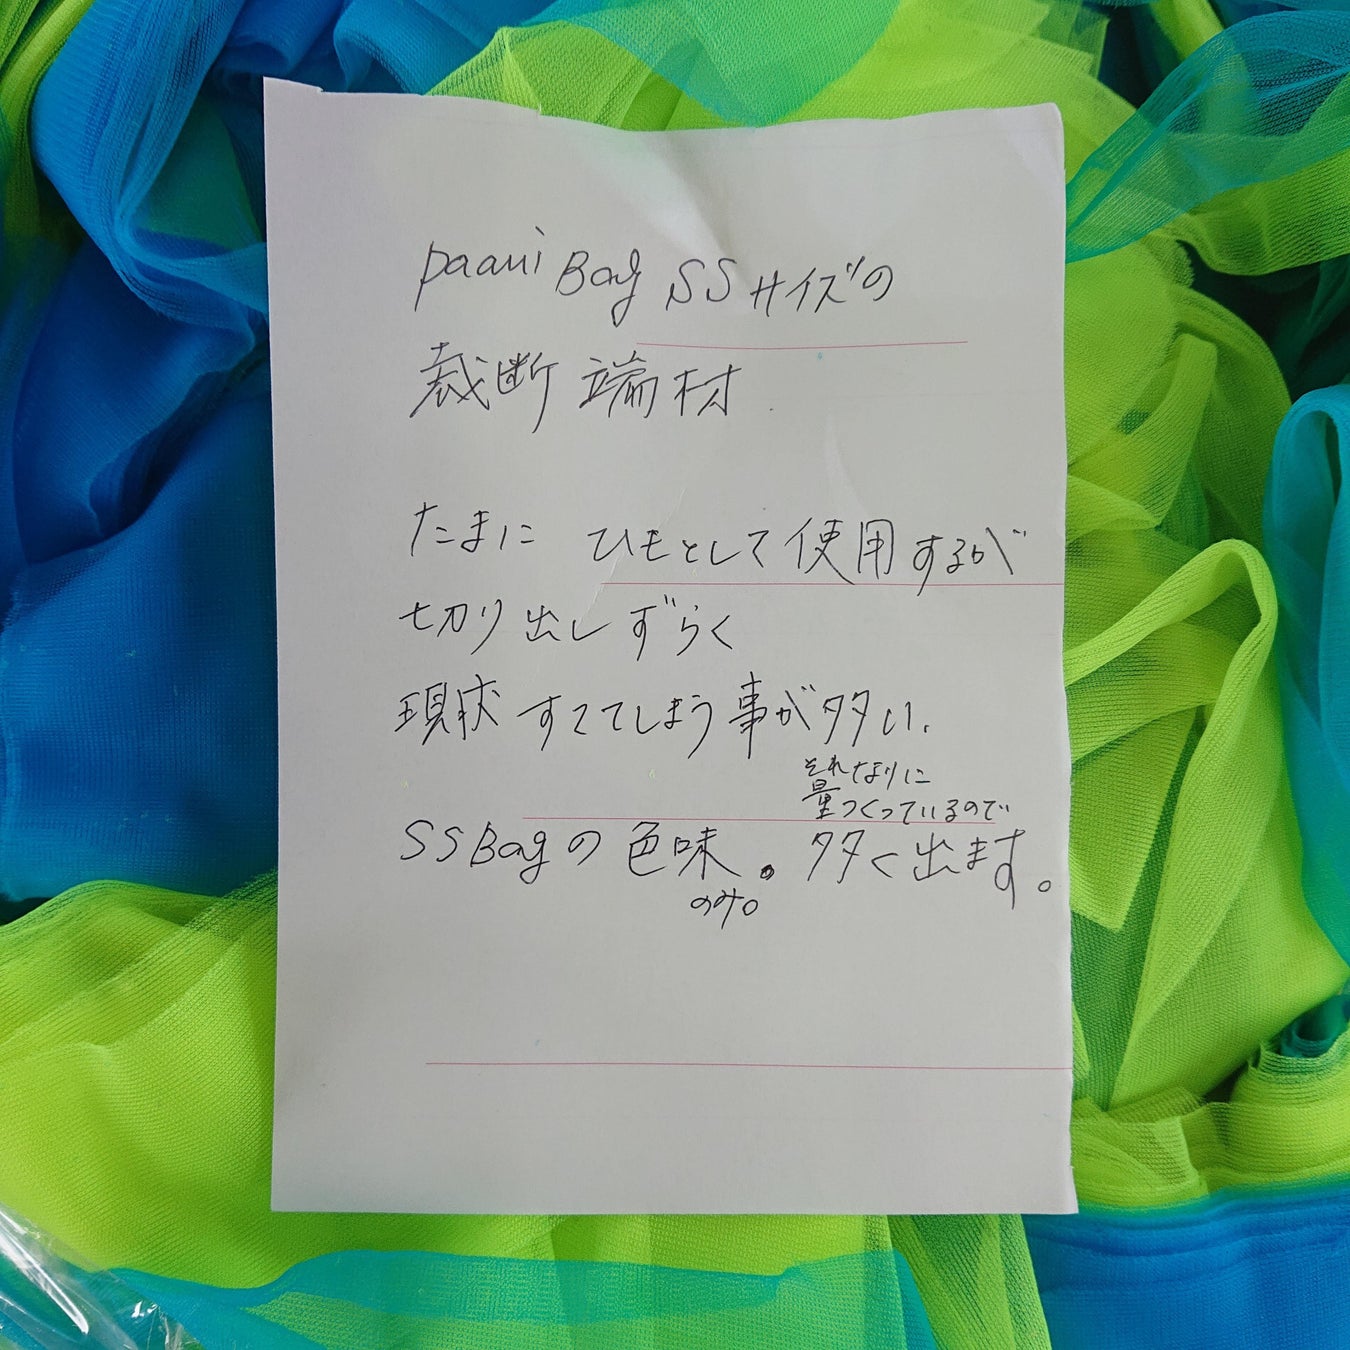 paani Bag SSサイズの
裁断端材
たまに ひもとして使用するが
切り出しずらく
現状 すててしまう事が多い.
それなりに
量つくっているので
SSBagの色味。多く出ます。
のみ。